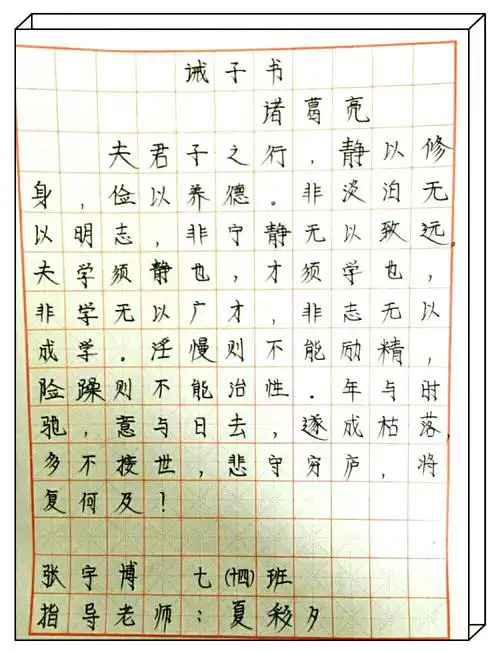 诫子书
诸葛亮
夫君子之行，静以修
身，俭以养德。非淡泊无
以明志，非宁静无以致远。
夫学须静也，才须学也，
非学无以广才，非志无以
成学。淫慢则不能励精，
险躁则不能治性。年与时
驰，意与日去，遂成枯落，
多不接世，悲守穷庐，将
复何及！
张宇博 七（十四）班
指导老师：夏移夕